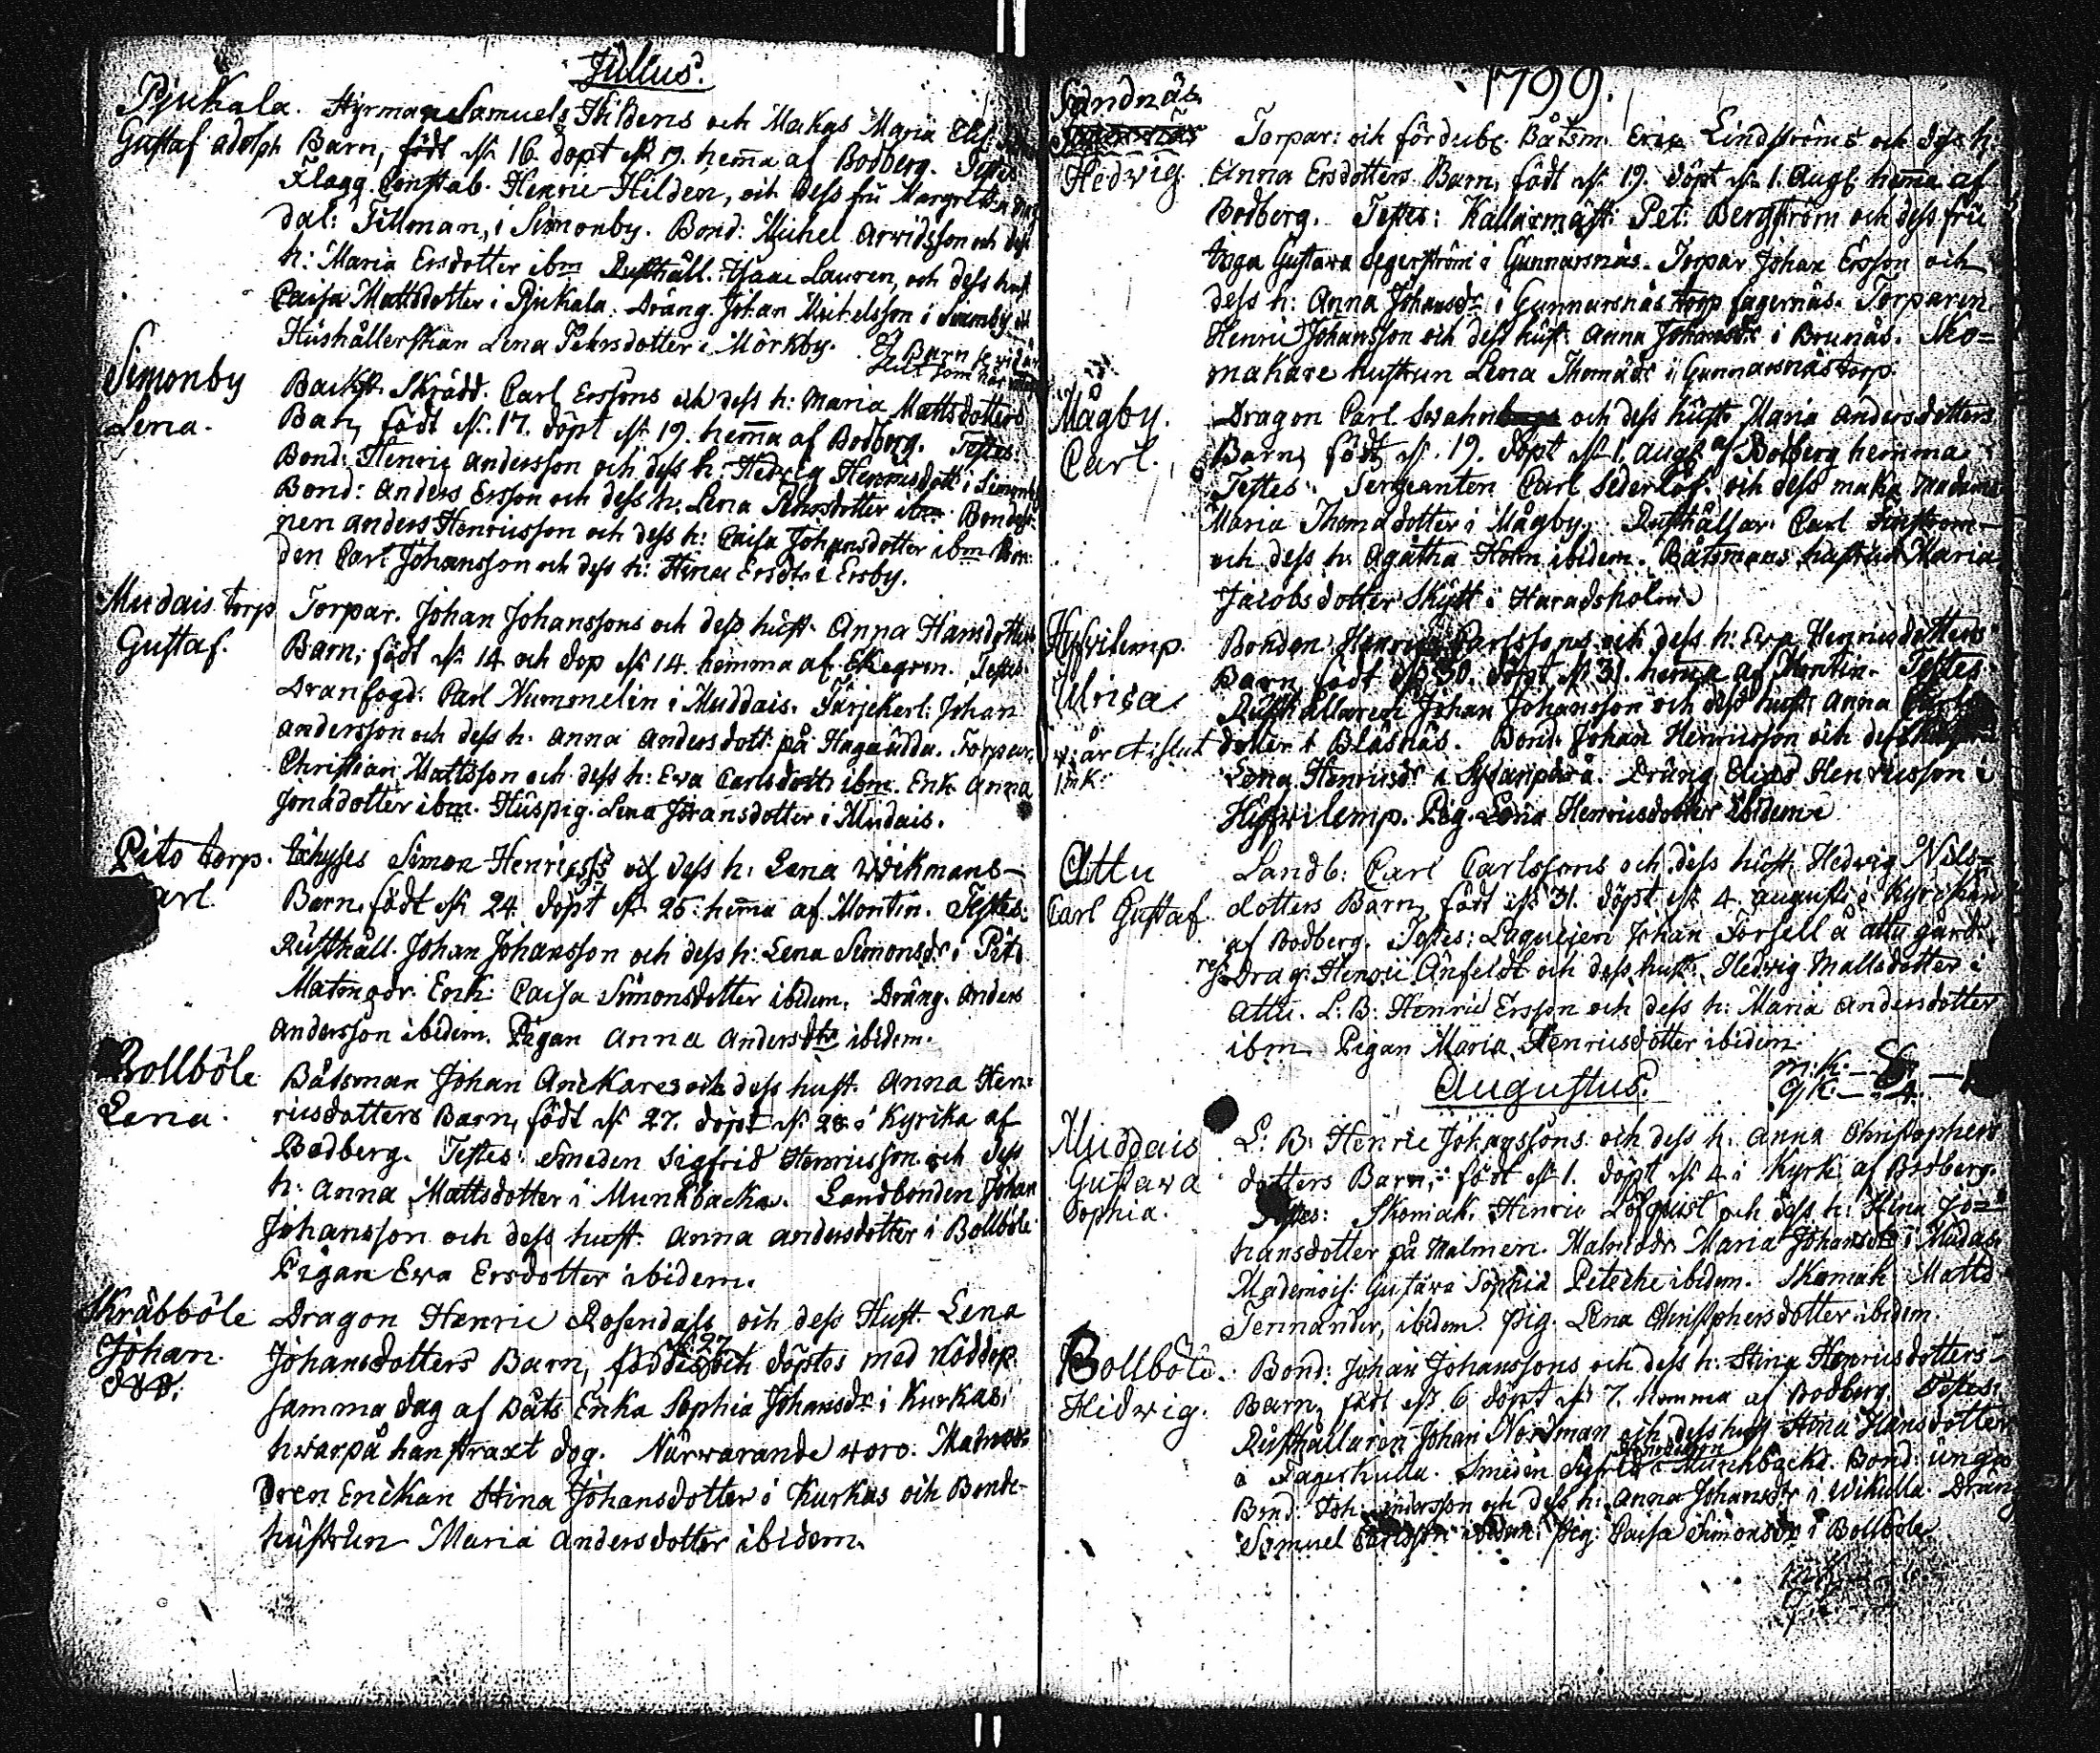 Julius.
Pjukala. Styrman Samuels Hildens och Makas Maria
Gustaf Adolph Barn, födt d. 16. döpt d. 19. hemma af Bodberg. Testes
Flagg. Constab. Henric Hilden, och dess fru Margretha
dal: Tillman, i Simonby. Bond: Michel Arvidsson och dess
h: Maria Ersdotter ibm Rusthåll. Isaac Lauren, och dess hust
Caisa Mattsdotter i Pjukala. Dräng. Johan Michelsson i Simonby
Hushållerskan Lena Pehrsdotter i Mörkby.
Simonby Backst. Skrädd. Carl Erssons och dess h: Maria Mattsdotters
Lena. Barn, födt d. 17. döpt d. 19. hemma af Bodberg. Testes
Bond. Henric Andersson och dess h: Hedvig Henricsdott: i Simonby
Bond: Anders Ersson och dess h: Lena Pehrsdotter ibm Bondes
nen Anders Henricsson och dess h: Caisa Johansdotter ibm Bon
den Carl Johansson och dess h: Stina Ersdtr i Ersby.
Mudais torp Torpar. Johan Johanssons och dess hust. Anna Hansdotters
Gustaf. Barn, födt d. 14 och döp d. 14. hemma af Ekegren. Testes
Dranfogd: Carl Nummelin i Muddais. Färjekerl: Johan
Andersson och dess h. Anna Andersdott: på Hagaudda. Torpar.
Christian Mattsson och dess h: Eva Carlsdott: ibm. Enk Anna
Jonadotter ibm. Huspig. Lena Jöransdotter i Mudais.
Pito torp. Simon Henricss och dess h: Lena Wikmans
arl Barn, födt d. 24. döpt d. 25. hemma af Montin. Testes:
Rusthåll. Johan Johansson och dess h: Lena Simonsdr i Pito
Matmodr. Enk: Caisa Simonsdotter ibidem. Dräng. Anders
Andersson ibidem. Pigan Anna Andersdtr ibidem.
Bollböle Båtsman Johan Anckares och dess hust. Anna Hen-
Lena. ricsdotters Barn, födt d. 27. döpt d. 28. i Kyrcka af
Bodberg. Testes: Smeden Sigfrid Henricsson och dess
h: Anna Mattsdotter i Munkbacka. Landbonden Johan
Johansson och dess hust. Anna Andersdotter i Bollböle
Pigan Eva Ersdotter ibidem.
Skräbböle Dragon Henric Rosendals och dess Hust. Lena
Johan. Johansdotters Barn, föddes d. 27 och döptes med nöddop
död. samma dag af Båts Enka Sophia Johansdr i Kurkas,
hvarpå han straxt dog. Närvarande voro. Matmo-
dren Enckan Stina Johansdotter i Kurkas och Bonde-
hustrun Maria Andersdotter ibidem.
1799.
Sandnäs
Torpar: och fördubl. Båtsm. Eric Lindströms och dess h:
Hedvig. Anna Ersdotters Barn, födt d. 19. döpt d. 1. Aug. hemma af
Bodberg. Testes: Källarmäst: Pet: Bergström och dess fru
Inga Gustava Segerström i Gunnarsnäs. Torpar Johan Ersson och
dess h: Anna Johansdr i Gunnarsnäs torp Fagernäs. Torparen
Henric Johansson och dess hust. Anna Johansdr i Brunäs. Sko-
makare hustrun Lena Thomädr i Gunnarsnäs torp
Mågby. Dragon Carl Swahn och dess hust. Maria Andersdotters
Carl. Barn, födt d. 19. döpt d. 1. Aug. af Bodberg hemma
Testes: Sergeanten Carl Sederlöf och dess maka Madame
Maria Thomadotter i Mågby. Rusthållar. Carl
och dess h: Agatha Holm ibidem. Båtsmans hustrun Maria
Jacobsdotter Skytt i Haradsholm
Hyfvilemp. Bonden Henric Carlssons och dess h: Eva Henricsdotters
Ulrica Barn födt d. 30. döpt d. 31. hemma af Montin. Testes
Rusthållaren Johan Johansson och dess hust: Anna Carls
dotter i Bläsnäs. Bond. Johan Henricsson och dess
Lena Henricsdr i. Dräng Elias Henricsson i
Hyfvilemp. Pig. Lena Henricsdotter ibidem
Attu Landb: Carl Carlssons och dess hust: Hedvig Nils-
Carl Gustaf. dotters Barn, födt d. 31. döpt d. 4. Augusti i Kyrckan
af Bodberg. Testes: Laquejen Johan Forsell å Attu gård.
Drag: Henric Anfeldt och dess hust. Hedvig Mattsdotter i
Attu. L. B: Henric Ersson och dess h: Maria Andersdotter
ibm. Pigan Maria Henricsdotter ibidem.
Augustus.
Muddais L: B: Henric Johanssons och dess h: Anna Christophers
Gustava dotters Barn, födt d. 1. döpt d. 4. i Kyrk. af Bodberg.
Sophia. Testes: Skomak. Henric Löfquist och dess h: Stina Jo-
hansdotter på Malmen. Matmodr. Maria Johansdr i Mudais
Mademois: Gustava Sophia Petsche ibidem. Skomak: Matts
Tennander, ibidem. Pig. Lena Christophersdotter ibidem.
Bollböle. Bond: Johan Johanssons och dess h: Stina Henricsdotters
Hedvig. Barn, födt d. 6 döpt d. 7. hemma af Bodberg. Testes:
Rusthållaren Johan Nordman och dess hust Stina Hansdotter
i Fagerkulla. Smeden Sigfrid i Munkbacka. Bond: unga
Bond. Joh. Andersson och dess h: Anna Johansdr i Wikulla. Dräng
Samuel Carlsson ibidem. Pig: Caisa Simonsdr i Bollböle.